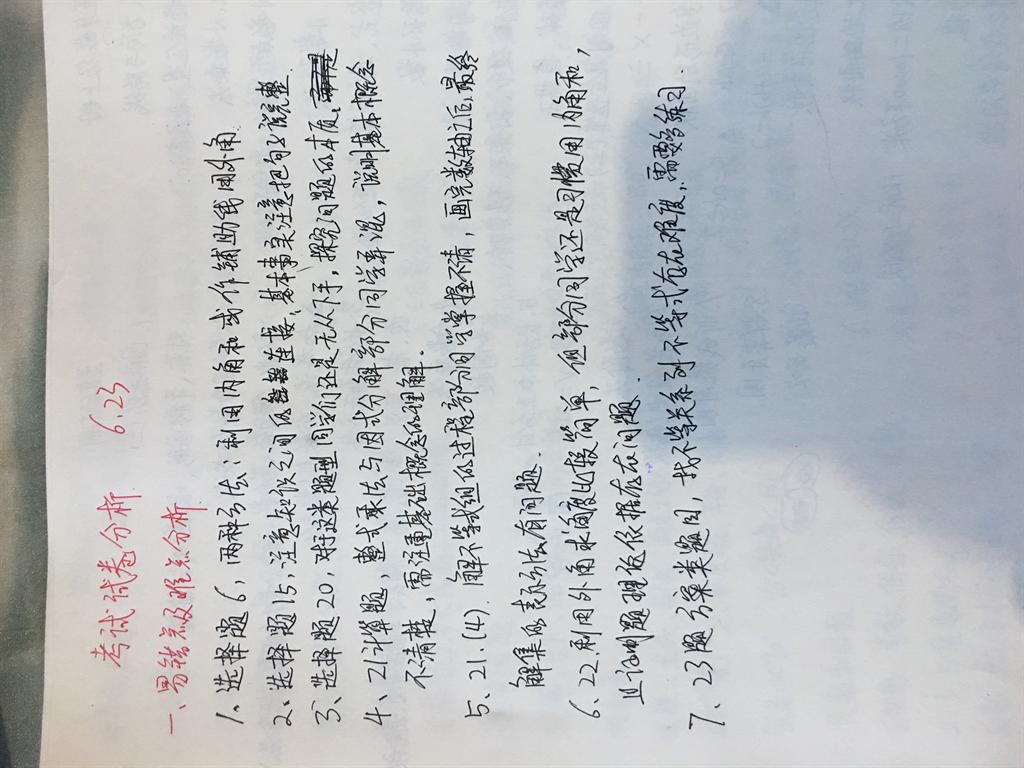 考试试卷分析 6.23
一、易错点及难点分析
1、选择题6，两种方法：利用内角和或作辅助线用外角.
2、选择题15，注意知识之间的连接、基本事实注意把句子说完整.
3、选择题20，对于这类题型同学们还是无从下手，探究问题的本质.
4、21计算题，整式乘法与因式分解部分同学弄混，说明基本概念
不清楚，需注重基础概念的理解.
5、21.(4). 解不等式组的过程部分同学掌握不清，画完数轴之后，最终
解集的表示方法有问题.
6、22.利用外角求角度比较简单，但部分同学还是习惯用内角和，
且证明题理论依据存在问题.
7、23题 方案类题目，找不等关系列不等式存在难度，需要多练习.